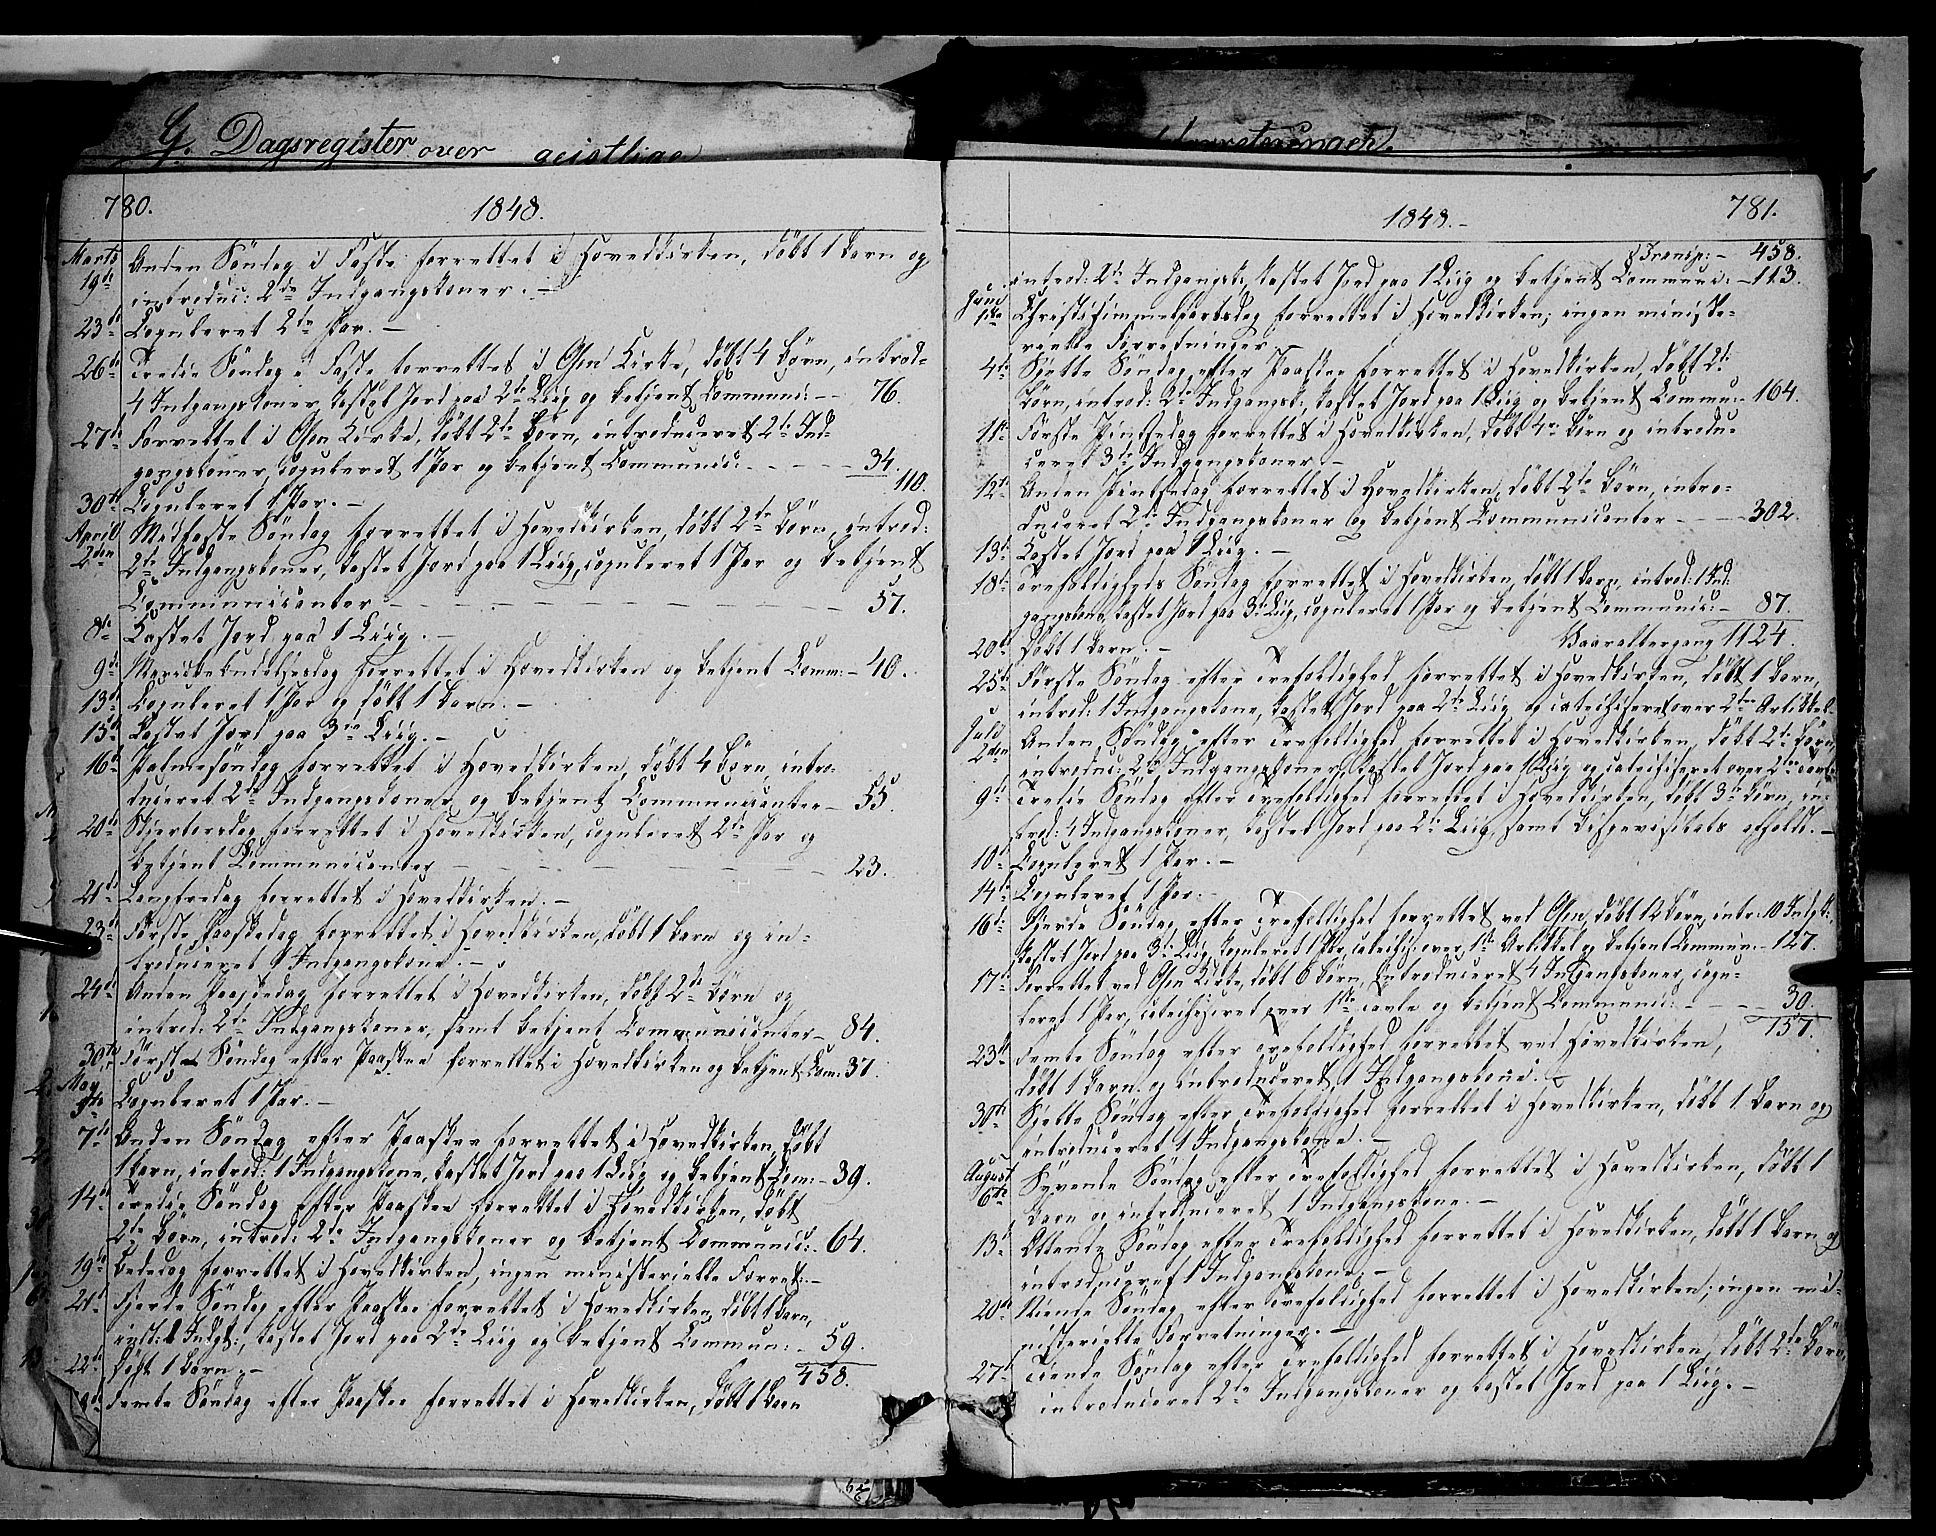 G. Dagsregister over geistlige
780.
1848.
Marts Anden Söndag i Faste forrettet i Hovedkirken, döbt 1 Barn og
19de introduc: 2de Indgangskoner. –
23de Copuleret 2de Par. –
26de Tredie Söndag i Faste forrettet i Osen Kirke, döbt 4 Börn, introd:
4 Indgangskoner, kastet Jord paa 2de Liig og betjent Communi: – – 76.
27de Forrettet i Osen Kirke, döbt 2de Börn, introduceret 2de Ind-
gangskoner, copuleret 1 Par og betjent Communic: – – – – – 34.
110.
30te Copuleret 1 Par. –
April Midfaste Söndag forrettet i Hovedkirken, döbt 2de Börn, introd:
2den 2de Indgangskoner, kastet Jord paa 1 Liig, copuleret 1 Par og betjent
Communicanter – – – – – – – – – – – 57.
8de Kastet Jord paa 1 Liig. –
9de Mariæ Bebudelsesdag forrettet i Hovedkirken og betjent Comm: – 40.
13de Copuleret 1 Par og döbt 1 Barn. –
15de Kastet Jord paa 3de Liig. –
16de Palmesöndag forrettet i Hovedkirken, döbt 4 Börn, intro-
duceret 2de Indgangskoner og betjent Communicanter – 55.
20de Skjertorsdag forrettet i Hovedkirken, copuleret 2de Par og
betjent Communicanter – – – – – – – 23.
21de Langfredag forrettet i Hovedkirken. –
23de Første Paaskedag forrettet i Hovedkirken, döbt 1 Barn og in-
troduceret 1 Indgangskone. –
24de Anden Paaskedag forrettet i Hovedkirken, döbt 2de Börn og
introd: 2de Indgangskoner, samt betjent Communicanter – 84.
30te Første Söndag efter Paaske forrettet i Hovedkirken og betjent Com: 37.
May Copuleret 1 Par. –
7de Anden Söndag efter Paaske forrettet i Hovedkirken, döbt
1 Barn, introd: 1 Indgangskone, kastet Jord paa 1 Liig og betjent Com: – 39.
14de Tredie Söndag efter Paaske forrettet i Hovedkirken, döbt
2de Börn, introd: 2de Indgangskoner og betjent Communic: – 64.
19de Bededag forrettet i Hovedkirken, ingen ministerielle Forret: –
21de Fjerde Söndag efter Paaske forrettet i Hovedkirken, döbt 1 Barn,
Indgk:, kastet Jord paa 2de Liig og betjent Commun: – 59.
22de Döbt 1 Barn. –
458.
Femte Söndag efter Paaske forrettet i Hovedkirken, döbt 1 Barn
1848. –
781.
Transp: – 458.
introd: 2de Indgangsk:, kastet Jord paa 1 Liig og betjent Commun: – 113.
Juni
1ste Christi Himmelfartsdag forrettet i Hovedkirken; ingen ministe-
rielle Forretninger. –
4de Sjette Söndag efter Paaske forrettet i Hovedkirken, döbt 2de
Börn, introd: 2de Indgangsk:, kastet Jord paa 1 Liig og betjent Commun: 164.
11te Første Pintsedag forrettet i Hovedkirken, döbt 4re Börn og introdu-
ceret 3de Indgangskoner. –
12te Anden Pintsedag forrettet i Hovedkirken, döbt 2de Börn, intro-
duceret 2de Indgangskoner og betjent Communicanter – – – 302.
13de Kastet Jord paa 1 Liig. –
18de Trefoldigheds Söndag forrettet i Hovedkirken, döbt 1 Barn, introd: 1 Ind-
gangskone, kastet Jord paa 3de Liig, copuleret 1 Par og betjent Communic: – 87.
20de Döbt 1 Barn. – Vaaraltergang 1124.
25de Første Söndag efter Trefoldighed forrettet i Hovedkirken, döbt 1 Barn,
introd: 1 Indgangskone, kastet Jord paa 2de Liig og catechiseret over 2den Artikkel.
Juli Anden Söndag efter Trefoldighed forrettet i Hovedkirken, döbt 2de Börn,
2den introduc: 2de Indgangskoner, kastet Jord paa 1 Liig og catechiseret over 2den Tavle.
9de Tredie Söndag efter Trefoldighed forrettet i Hovedkirken, döbt 3de Börn, in-
trod: 4 Indgangskoner, kastet Jord paa 2de Liig, samt Bispevisitats afholdt. –
10de Copuleret 1 Par. –
14de Copuleret 1 Par. –
16de Fjerde Söndag efter Trefoldighed forrettet ved Osen, döbt 12 Börn, intr: 10 Indgk:,
kastet Jord paa 3de Liig, copuleret 1 Par, catechis: over 1ste Artikkel og betjent Commun: – 127.
17de Forrettet ved Osen Kirke, döbt 6 Börn, introduceret 4 Indgangskoner, copu-
leret 1 Par, catechiseret over 1ste Tavle og betjent Communic: – – – – 30.
157.
23de Femte Söndag efter Trefoldighed forrettet ved Hovedkirken,
döbt 1 Barn og introduceret 1 Indgangskone. –
30te Sjette Söndag efter Trefoldighed forrettet i Hovedkirken, döbt 1 Barn og
introduceret 1 Indgangskone. –
August Syvende Söndag efter Trefoldighed forrettet i Hovedkirken, döbt 1
6te Barn og introduceret 1 Indgangskone. –
13de Ottende Söndag efter Trefoldighed forrettet i Hovedkirken, döbt 1 Barn og
introduceret 1 Indgangskone. –
20de Niende Söndag efter Trefoldighed forrettet i Hovedkirken; ingen mi-
nisterielle Forretninger. –
27de Tiende Söndag efter Trefoldighed forrettet i Hovedkirken, döbt 2de Börn,
introduceret 2de Indgangskoner og kastet Jord paa 1 Liig. –